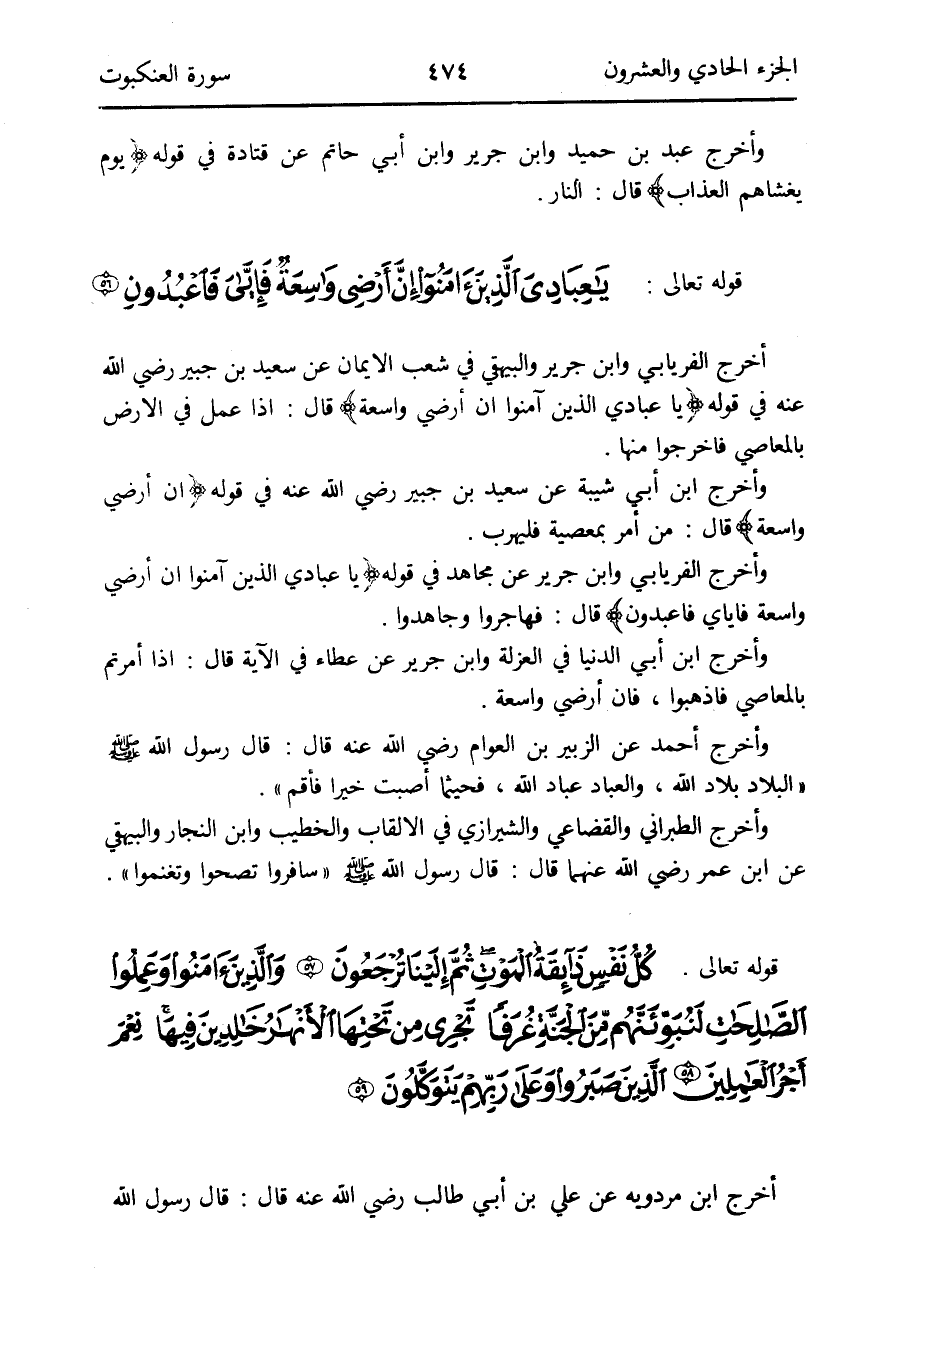 الجزء الحادي والعشرون ٤٧٤ سورة العنكبوت
وأخرج عبد بن حميد وابن جرير وابن أبي حاتم عن قتادة في قوله ﴿يوم
يغشاهم العذاب﴾ قال : النار .
قوله تعالى : يَٰعِبَادِىَ ٱلَّذِينَ ءَامَنُوٓا۟ إِنَّ أَرۡضِى وَٰسِعَةٞ فَإِيَّٰىَ فَٱعۡبُدُونِ ٥٦
أخرج الفريابي وابن جرير والبيهقي في شعب الايمان عن سعيد بن جبير رضي الله
عنه في قوله ﴿يا عبادي الذين آمنوا ان أرضي واسعة﴾ قال : اذا عمل في الارض
بالمعاصي فاخرجوا منها .
وأخرج ابن أبي شيبة عن سعيد بن جبير رضي الله عنه في قوله ﴿ان أرضي
واسعة﴾ قال : من أمر بمعصية فليهرب .
وأخرج الفريابي وابن جرير عن مجاهد في قوله ﴿يا عبادي الذين آمنوا ان أرضي
واسعة فاياي فاعبدون﴾ قال : فهاجروا وجاهدوا .
وأخرج ابن أبي الدنيا في العزلة وابن جرير عن عطاء في الآية قال : اذا أمرتم
بالمعاصي فاذهبوا ، فان أرضي واسعة .
وأخرج أحمد عن الزبير بن العوام رضي الله عنه قال : قال رسول الله ﷺ
«البلاد بلاد الله ، والعباد عباد الله ، فحيثما أصبت خيرا فأقم» .
وأخرج الطبراني والقضاعي والشيرازي في الالقاب والخطيب وابن النجار والبيهقي
عن ابن عمر رضي الله عنهما قال : قال رسول الله ﷺ «سافروا تصحوا وتغنموا» .
قوله تعالى . كُلُّ نَفۡسٖ ذَآئِقَةُ ٱلۡمَوۡتِۖ ثُمَّ إِلَيۡنَا تُرۡجَعُونَ ٥٧ وَٱلَّذِينَ ءَامَنُوا۟ وَعَمِلُوا۟
ٱلصَّٰلِحَٰتِ لَنُبَوِّئَنَّهُم مِّنَ ٱلۡجَنَّةِ غُرَفٗا تَجۡرِى مِن تَحۡتِهَا ٱلۡأَنۡهَٰرُ خَٰلِدِينَ فِيهَاۚ نِعۡمَ
أَجۡرُ ٱلۡعَٰمِلِينَ ٥٨ ٱلَّذِينَ صَبَرُوا۟ وَعَلَىٰ رَبِّهِمۡ يَتَوَكَّلُونَ ٥٩
أخرج ابن مردويه عن علي بن أبي طالب رضي الله عنه قال : قال رسول الله